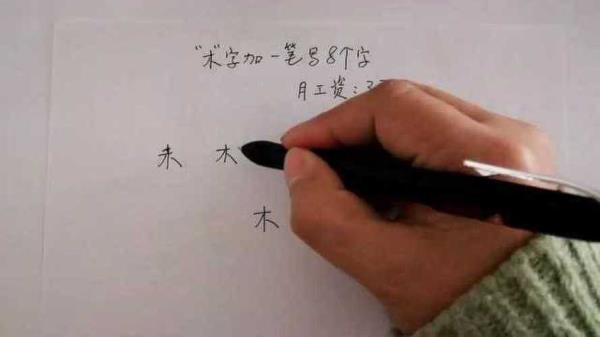 “木”字加一笔写8个字
月工资:3
未 木
木